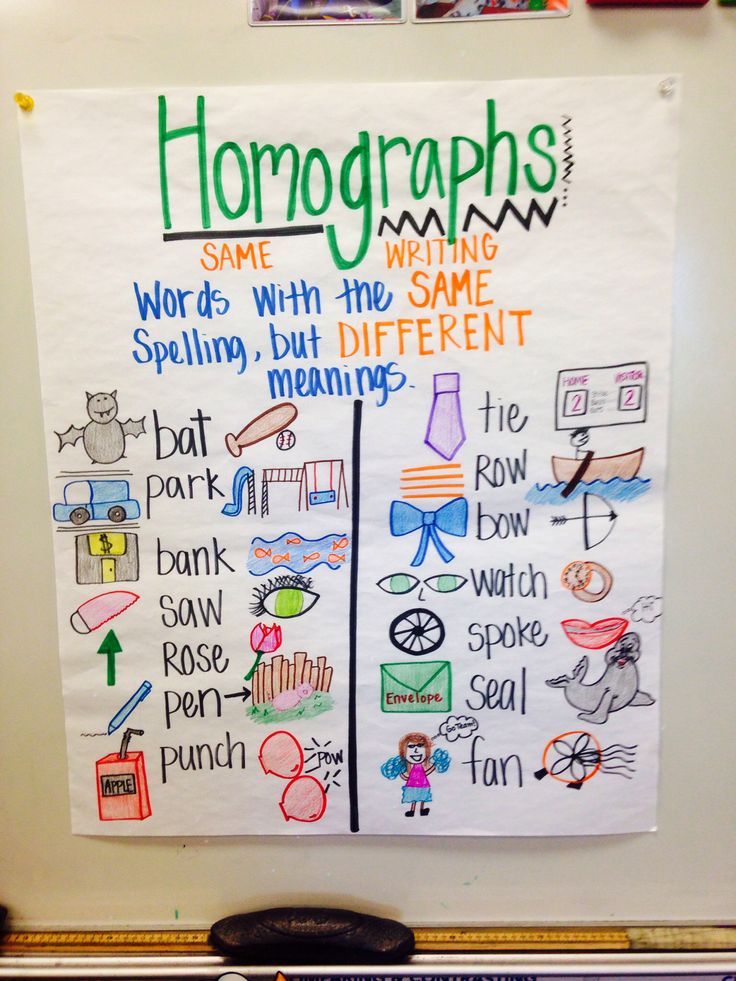 Homographs
SAME WRITING
Words with the SAME
Spelling, but DIFFERENT
meanings.
bat
park
$
bank
saw
Rose
pen
punch
APPLE
POW
tie
HOME VISITOR
2 2
Row
bow
watch
spoke
Hi
Envelope
seal
Go Team!
fan